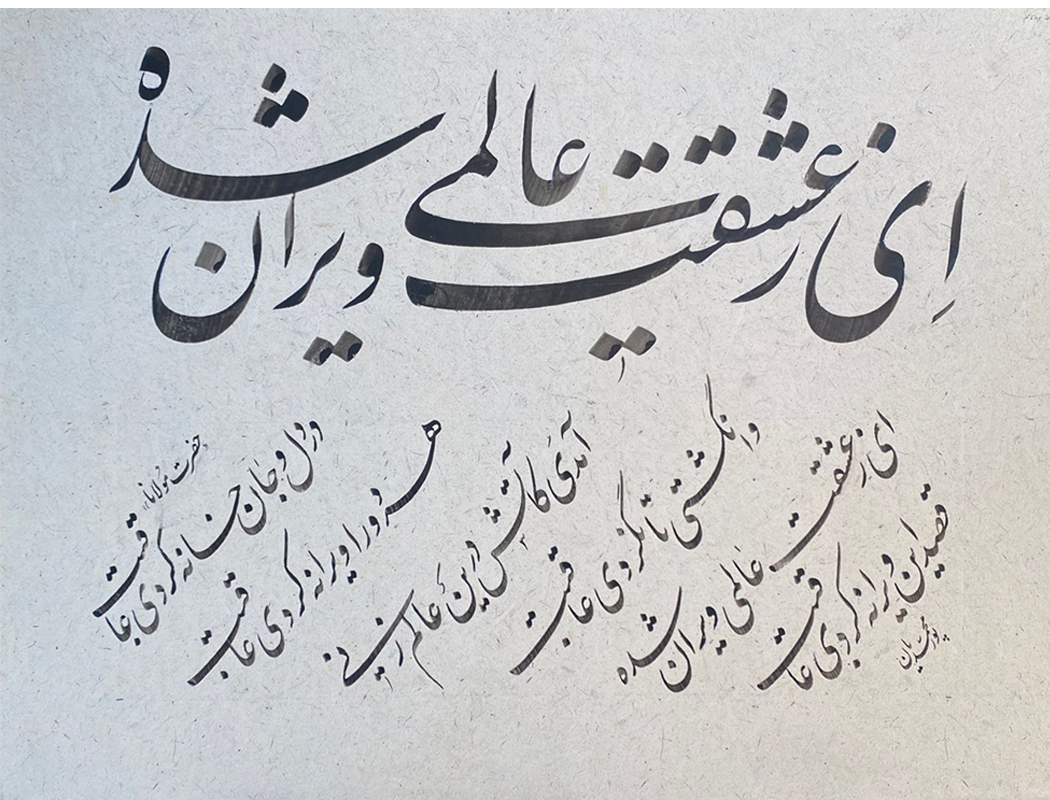 ای ز عشقت عالمی ویران شده
حضرت مولانا
در دل و جان خانه کردی عاقبت
هر دو را ویرانه کردی عاقبت
آمدی کآتش درین عالم زنی
وانگشتی تا نکردی عاقبت
ای ز عشقت عالمی ویران شده
قصد این ویرانه کردی عاقبت